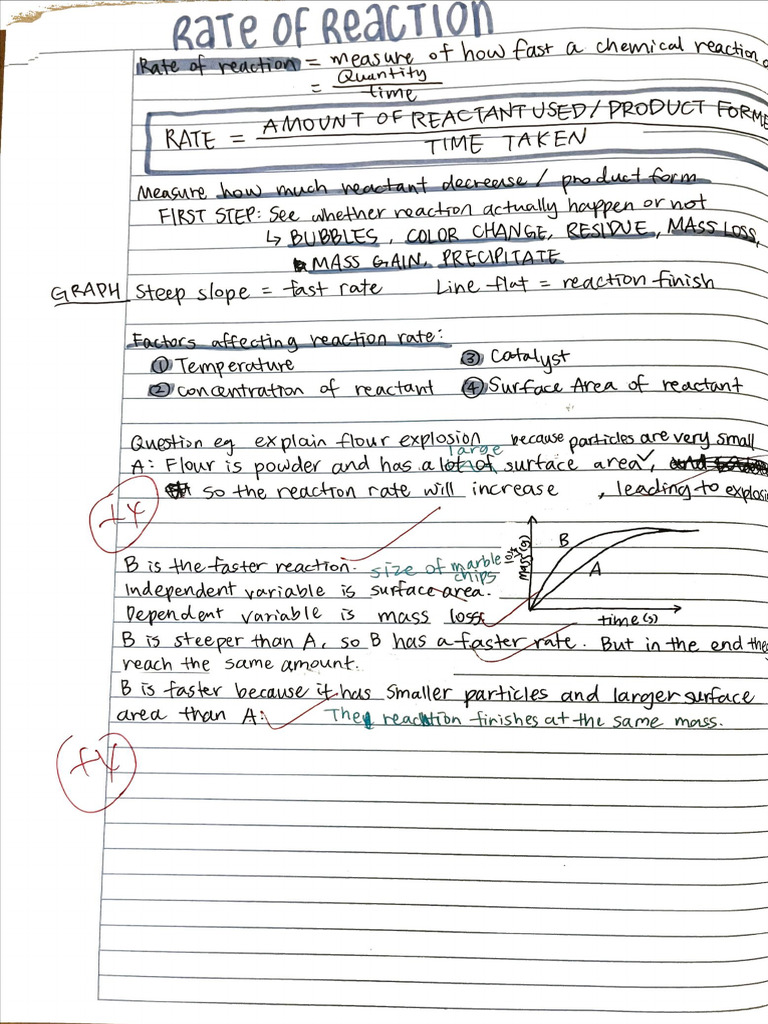 RATE OF REACTION
Rate of reaction = measure of how fast a chemical reaction
= Quantity
time
RATE = AMOUNT OF REACTANT USED / PRODUCT FORME
TIME TAKEN
Measure how much reactant decrease / product form
FIRST STEP: See whether reaction actually happen or not
↳ BUBBLES, COLOR CHANGE, RESIDUE, MASS LOSS,
MASS GAIN, PRECIPITATE
GRAPH Steep slope = fast rate Line flat = reaction finish
Factors affecting reaction rate:
① Temperature ③ Catalyst
② Concentration of reactant ④ Surface Area of reactant
Question eg explain flour explosion because particles are very small
large
A: Flour is powder and has a lot of surface area,
so the reaction rate will increase, leading to explosi
B is the faster reaction. size of marble
chips
Independent variable is surface area.
Dependent variable is mass loss.
B
A
MASS (g)
time (s)
B is steeper than A, so B has a faster rate. But in the end the
reach the same amount.
B is faster because it has smaller particles and larger surface
area than A. The reaction finishes at the same mass.